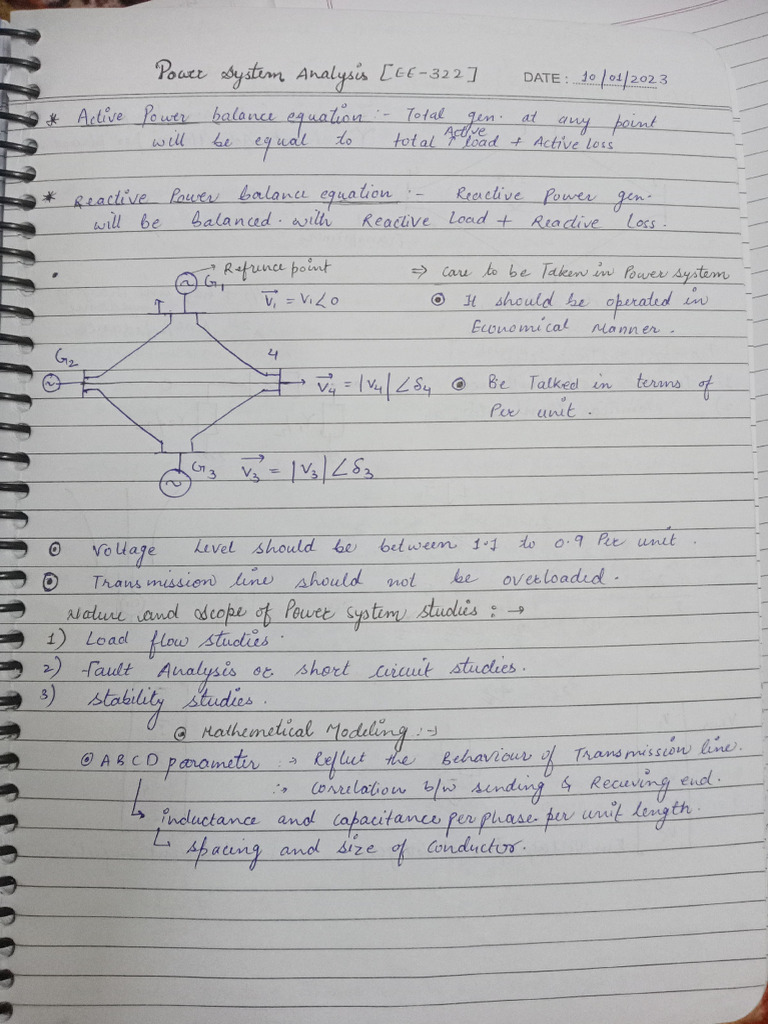 Power System Analysis [EE-322] DATE: 10/01/2023
* Active Power balance equation :- Total gen. at any point
will be equal to total Active load + Active loss
* Reactive Power balance equation :- Reactive Power gen.
will be balanced. with Reactive Load + Reactive Loss.
→ Refrence point
G1
V1 = V1∠0
⇒ care to be Taken in Power system
⊙ It should be operated in
Economical Manner.
G2
4
V4 = |V4| ∠δ4
⊙ Be Talked in terms of
Per unit.
G3 V3 = |V3| ∠δ3
⊙ Voltage Level should be between 1.1 to 0.9 Per unit.
⊙ Transmission line should not be overloaded.
Nature and scope of Power system studies : →
1) Load flow studies.
2) Fault Analysis or short circuit studies.
3) Stability studies.
⊙ Mathemetical Modeling :→
⊙ A B C D parameter :→ Reflect the Behaviour of Transmission line.
:→ Correlation b/w sending & Recieving end.
↳ inductance and capacitance per phase per unit length.
↳ spacing and size of conductor.